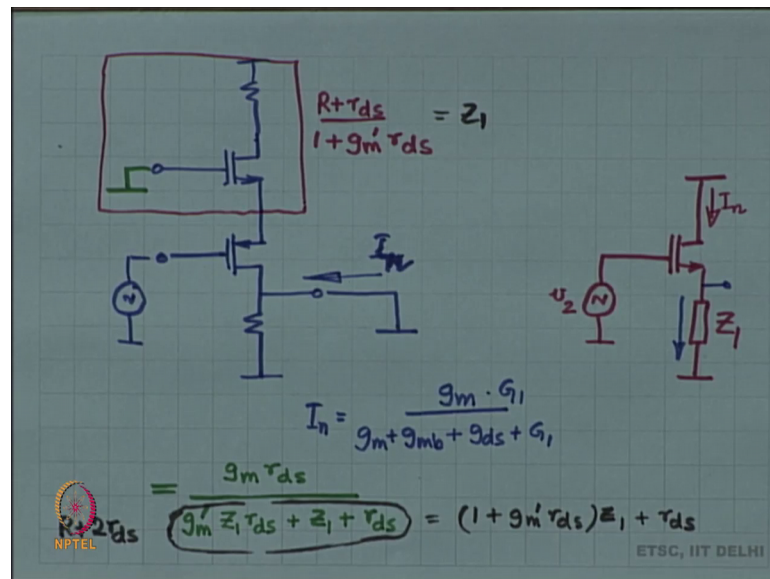 R+rds / 1+gm' rds = Z1
In
In
v2
Z1
In = gm · G1 / gm+gmb+gds+G1
= gm rds / gm' Z1 rds + Z1 + rds = (1+gm' rds) Z1 + rds
R+2rds
NPTEL
ETSC, IIT DELHI